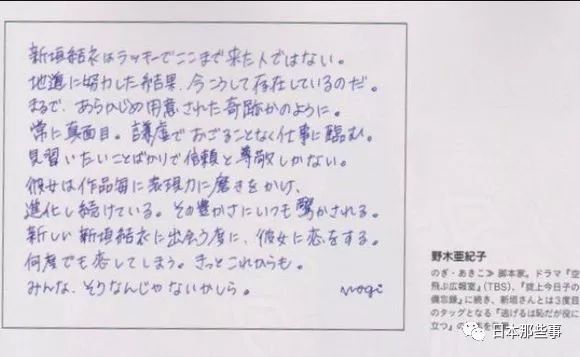 新垣結衣はラッキーでここまで来た人ではない。
地道に努力した結果、今こうして存在しているのだ。
まるで、あらかじめ用意された奇跡かのように。
常に真面目。謙虚でおごることなく仕事に臨む。
見習いたいことばかりで信頼と尊敬しかない。
彼女は作品毎に表現力に磨きをかけ、
進化し続けている。その豊かさにいつも驚かされる。
新しい新垣結衣に出会う度に、彼女に恋をする。
何度でも恋してしまう。きっとこれからも。
みんな、そうなんじゃないかしら。 nogi
野木亜紀子
のぎ・あきこ≫ 脚本家。ドラマ『空
飛ぶ広報室』(TBS)、『掟上今日子の
備忘録』に続き、新垣さんとは3度目
のタッグとなる『逃げるは恥だが役に
立つ』の
日本那些事